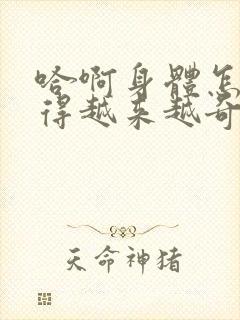 哈啊身體怎
得越来越奇
天命神猪